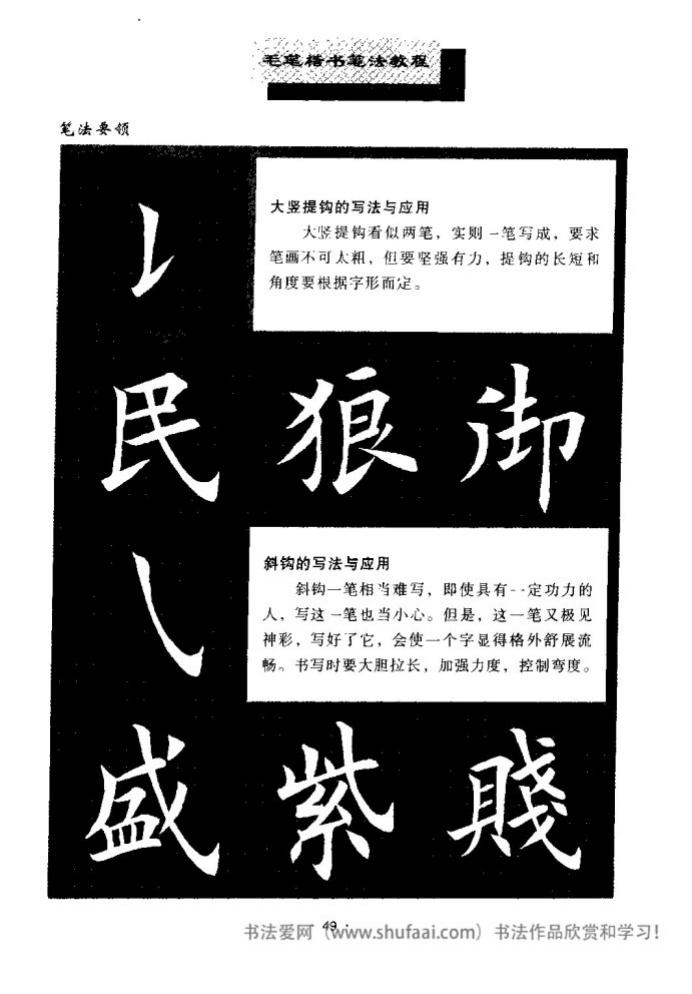 毛笔楷书笔法教程
笔法要领
大竖提钩的写法与应用
大竖提钩看似两笔，实则一笔写成，要求
笔画不可太粗，但要坚强有力，提钩的长短和
角度要根据字形而定。
民 狼 御
斜钩的写法与应用
斜钩一笔相当难写，即使具有一定功力的
人，写这一笔也当小心。但是，这一笔又极见
神彩，写好了它，会使一个字显得格外舒展流
畅。书写时要大胆拉长，加强力度，控制弯度。
盛 紫 賤
49
书法爱网（www.shufaai.com）书法作品欣赏和学习！